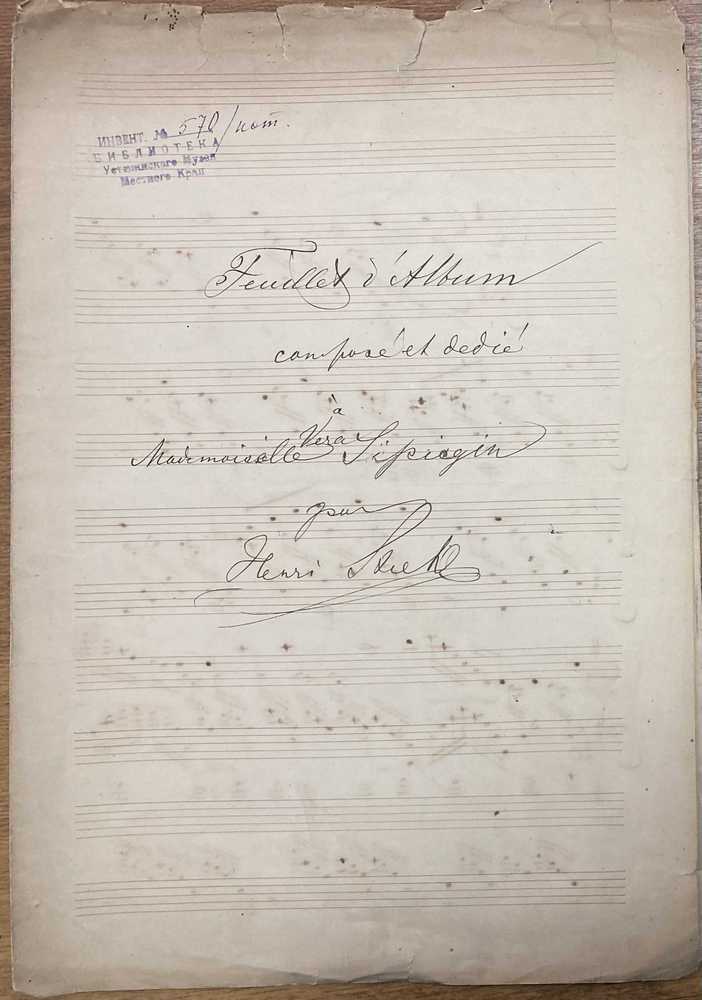 ИНВЕНТ. № 570/нот.
БИБЛИОТЕКА
Устюжнского Музея
Местного Края
Feuillet d'Album
composé et dedié
à
Mademoiselle Vera Sipiagin
par
Henri Stiehl